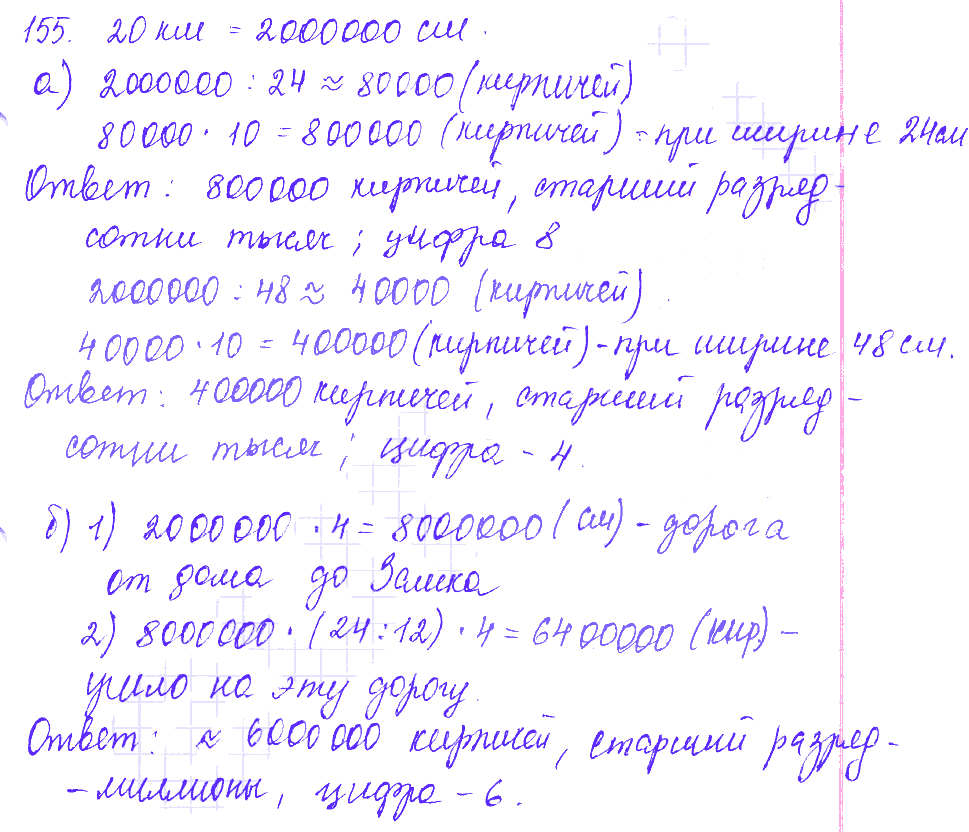 155. 20 км = 2000000 см.
а) 2000000 : 24 ≈ 80000 (кирпичей)
80000 · 10 = 800000 (кирпичей) - при ширине 24см
Ответ: 800000 кирпичей, старший разряд-
сотни тысяч; цифра 8
2000000 : 48 ≈ 40000 (кирпичей).
40000 · 10 = 400000 (кирпичей) - при ширине 48 см.
Ответ: 400000 кирпичей, старший разряд -
сотни тысяч; цифра - 4.
б) 1) 2000000 · 4 = 8000000 (см) - дорога
от дома до Замка
2) 8000000 · (24 : 12) · 4 = 6400000 (кир.) -
ушло на эту дорогу.
Ответ: ≈ 6000000 кирпичей, старший разряд -
- миллионы, цифра - 6.